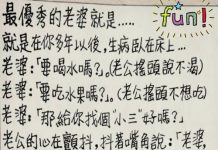 最優秀的老婆就是.....
fun!
就是在你多年以後,生病臥在床上...
老婆:「要喝水嗎?」。(老公搖頭說不渴)
老婆:「要吃水果嗎?」。(老公搖頭不想吃)
老婆:「那給你找個"小三"好嗎?」
老公的心在顫抖,抖著嘴角說:「老婆,